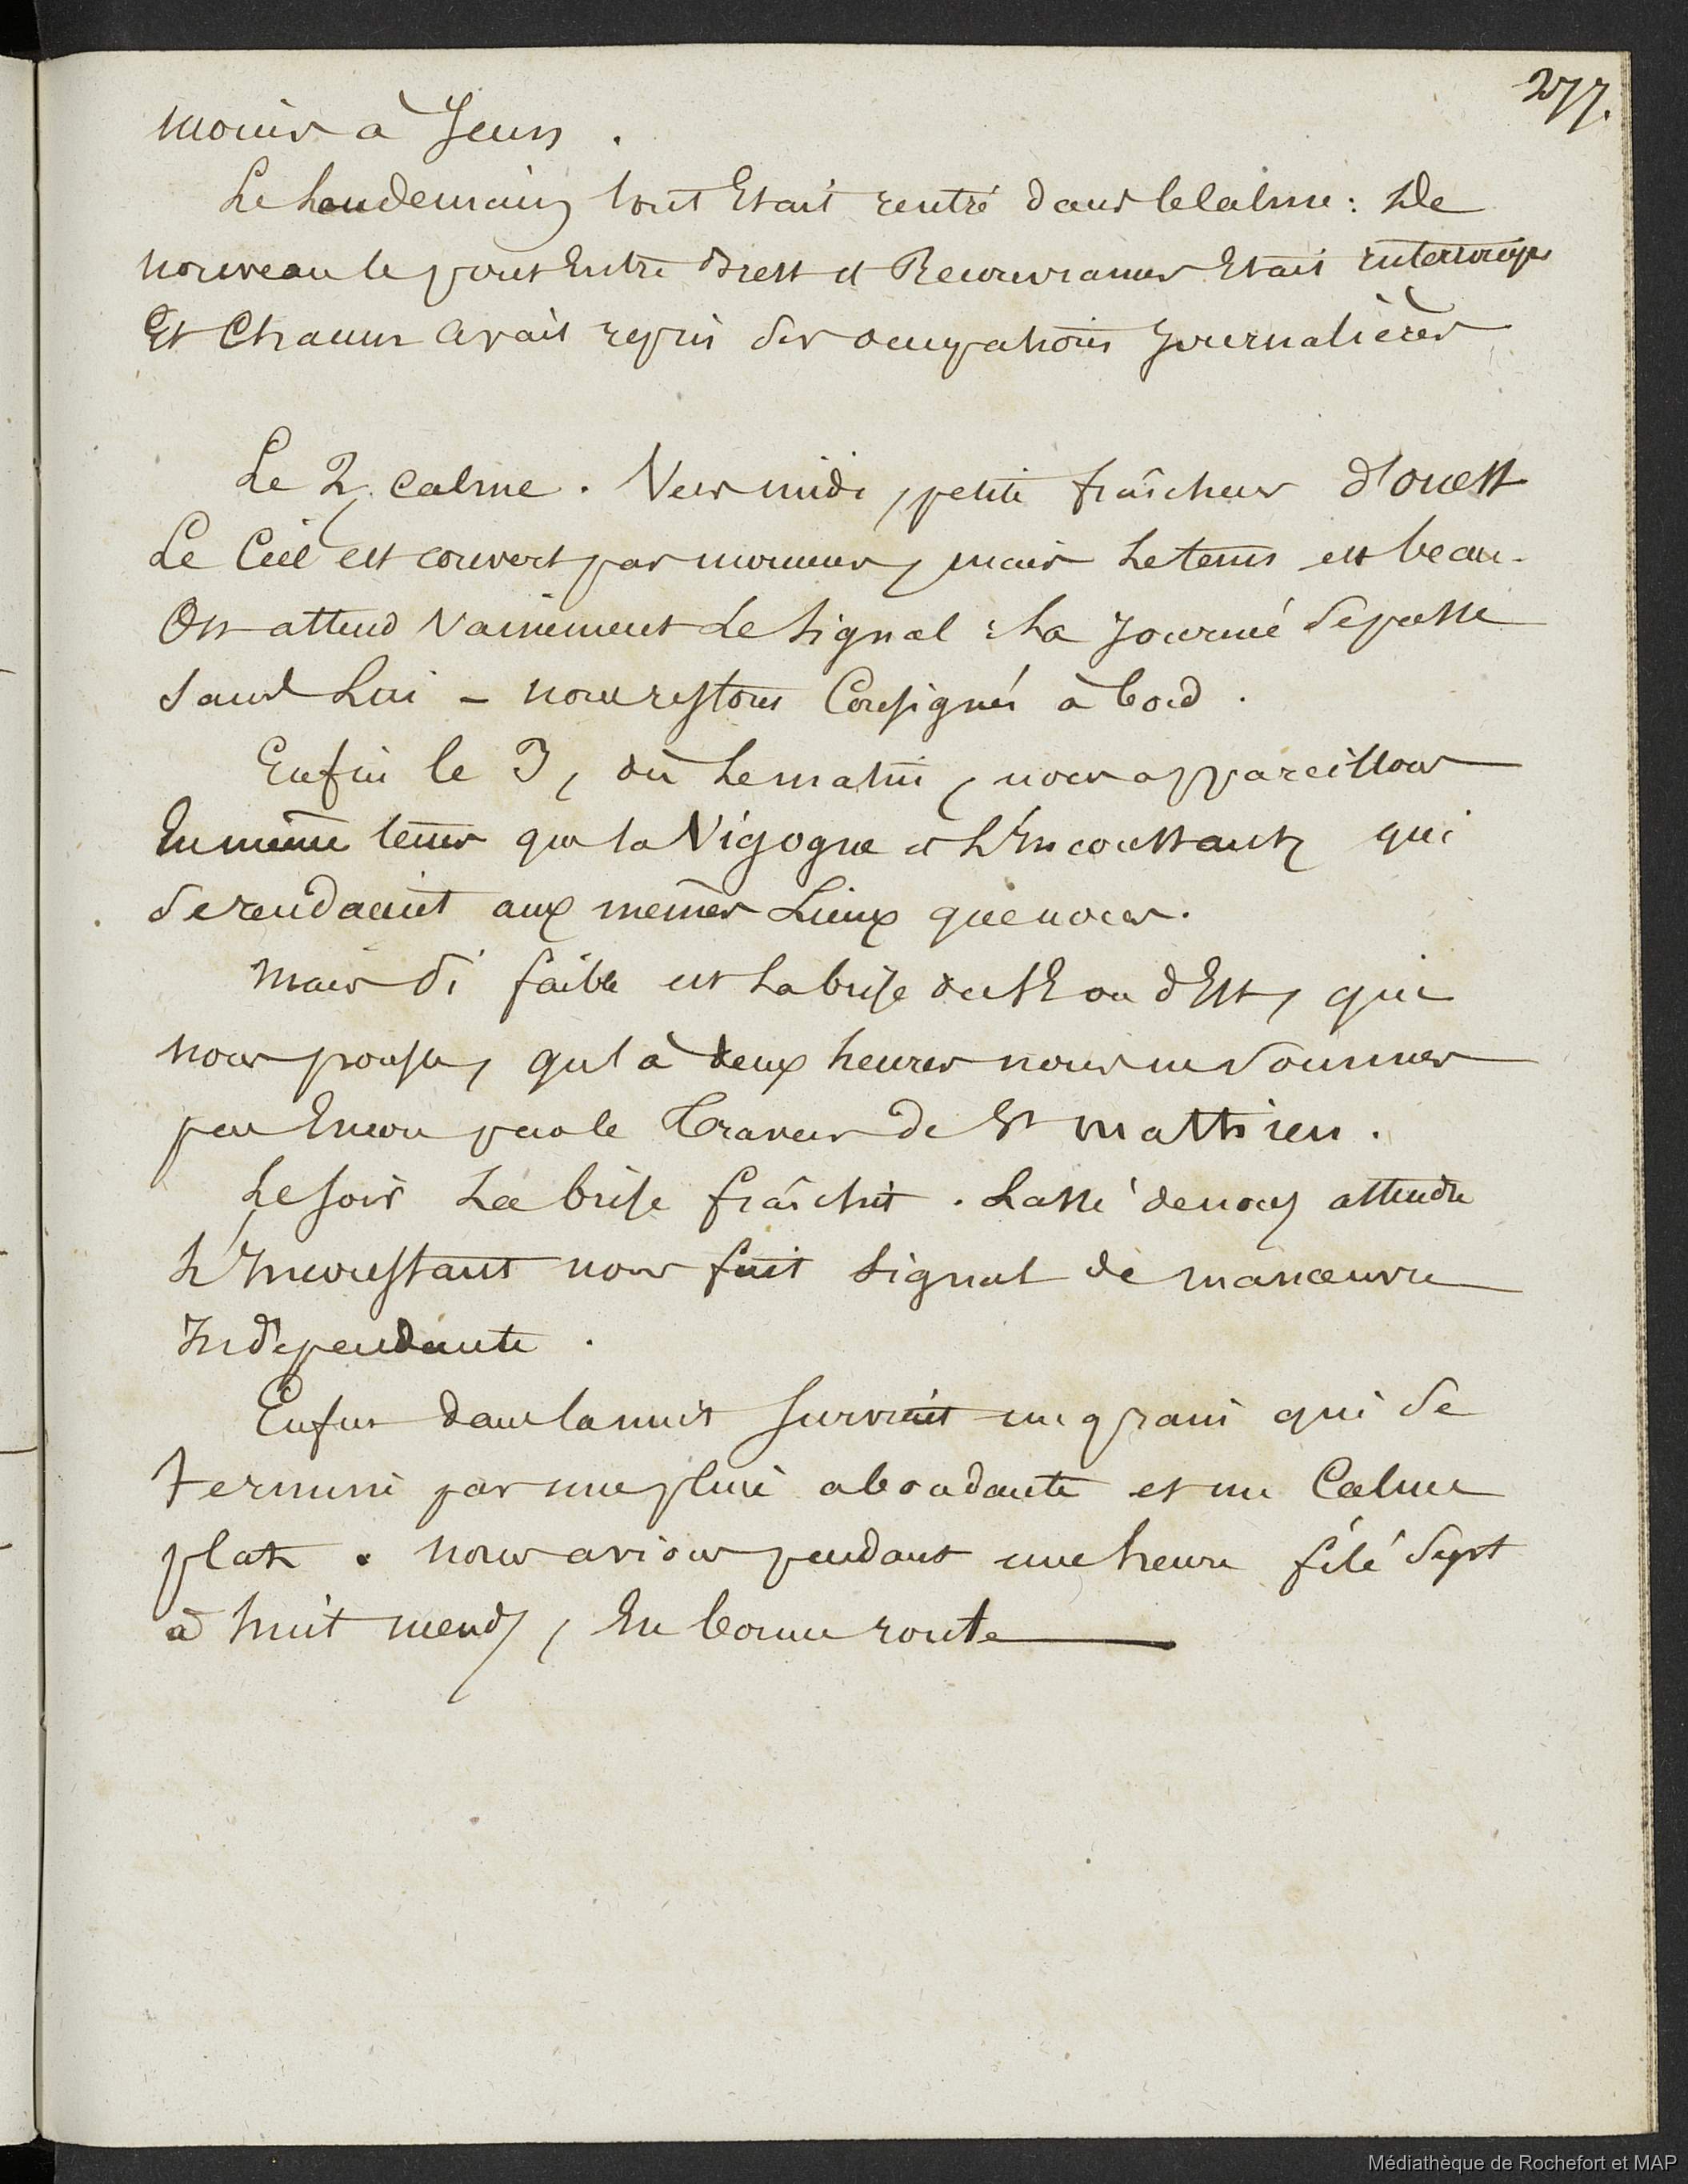 277.
moins à Jeun .
Le Lendemain, tout Etait rentré dans le Calme : De
nouveau le pont Entre Brest et Recouvrance Etait interrompu
Et Chacun avait repris ses occupations Journalières
Le 2, Calme . Vers midi, petite fraîcheur d'ouest
Le Ciel est couvert par moments, mais Le tems est beau .
On attend Vainement Le Signal : La Journée se passe
sans Lui - nous restons Consignés à bord .
Enfin le 3, dès Le matin, nous appareillons
En même tems que la Vigogne et L'Inconstant, qui
se rendaient aux mêmes Lieux que nous .
Mais si faible est La brise de NE ou d'Est, qui
nous pousse, qu'à deux heures nous ne sommes
pas Encore par le Travers de St Matthieu .
Le soir La brise fraîchit . Lassé de nous attendre
L'Inconstant nous fait signal de manœuvre
Indépendante .
Enfin dans la nuit survient un grain qui se
termine par une pluie abondante et un Calme
plat . Nous avions pendant une heure filé sept
à huit nœuds, En bonne route
Médiathèque de Rochefort et MAP